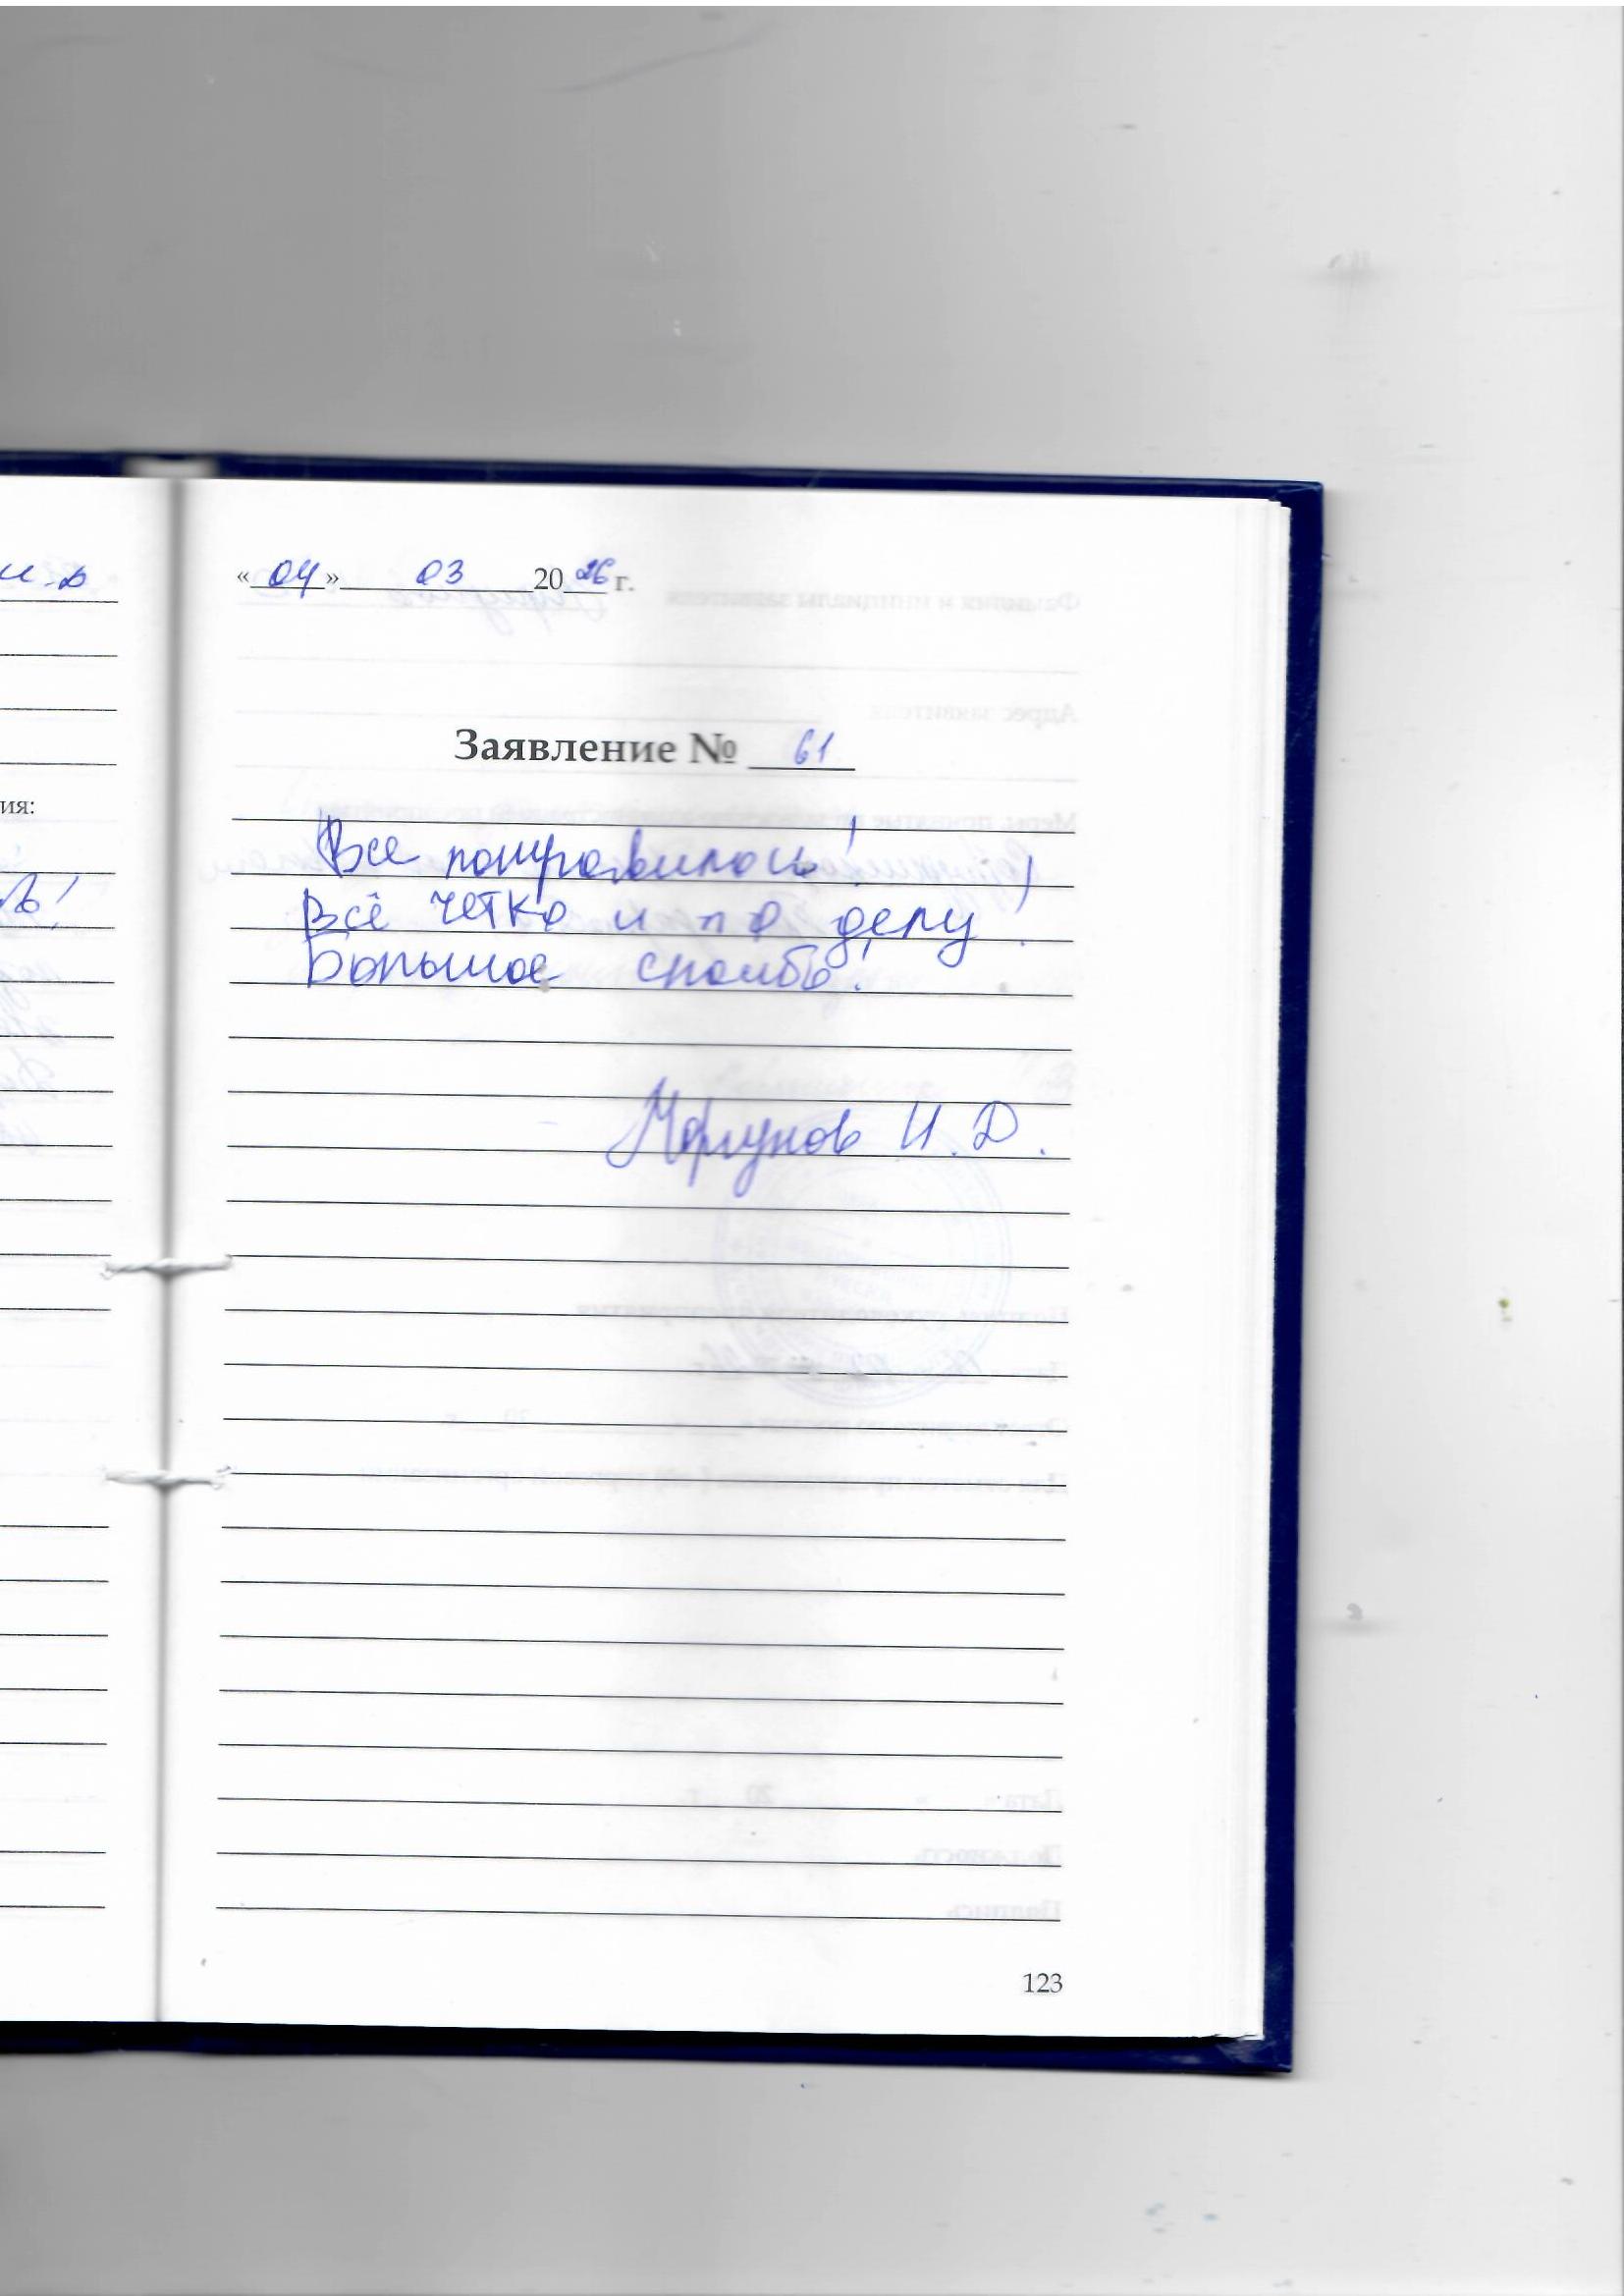 и.д
ия:
«04» 03 2026 г.
Заявление № 61
Все понравилось!
Всё четко и по делу!
Большое спасибо!
Моргунов И.Д.
123